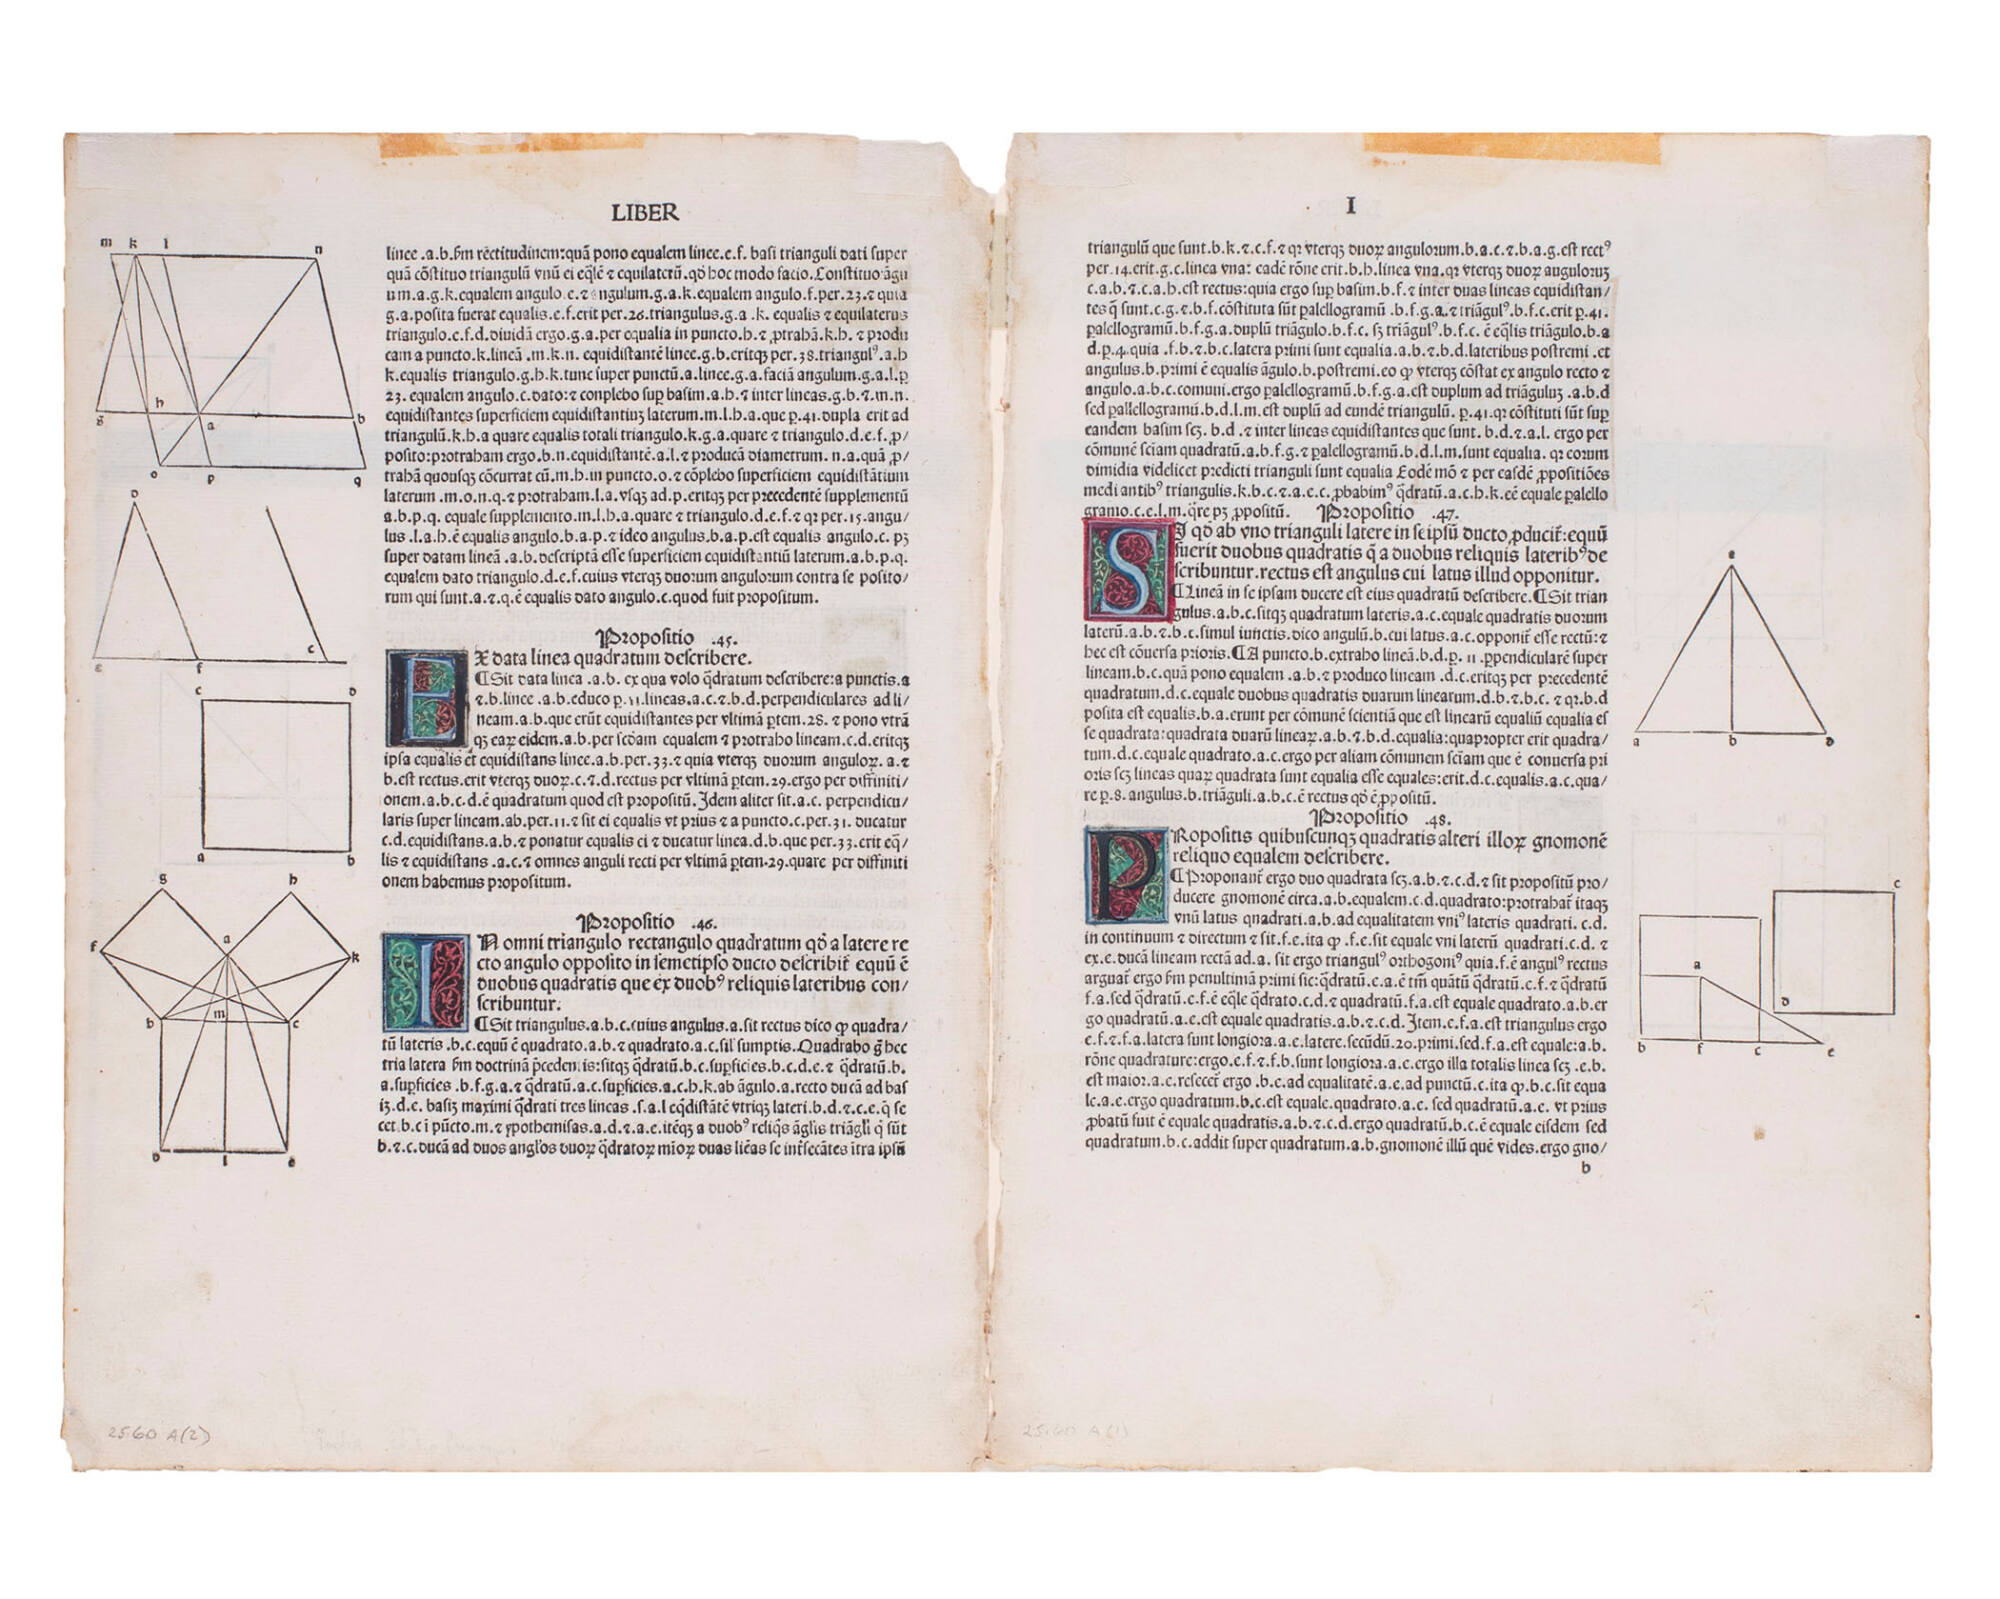 LIBER
linee .a.b. ẜm rectitudinem: quā pono equalem linee.e.f. basi trianguli dati super
quā cōstituo triangulū vnū ei eq̄lē ⁊ equilaterū. qd̄ hoc modo facio. Constituo āgu
um.a.g.k. equalem angulo.e.⁊ angulum.g.a.k. equalem angulo.f. per.23.⁊ quia
g.a. posita fuerat equalis.e.f. erit per.26. triangulus.g.a .k. equalis ⁊ equilaterus
triangulo.e.f.d. diuidā ergo.g.a. per equalia in puncto.h.⁊ ꝓtrahā.k.h. ⁊ produ
cam a puncto.k. lineā .m.k.n. equidistantē linee.g.b. eritqꝫ per.38. triangulꝰ.a.h
k. equalis triangulo.g.h.k. tunc super punctū.a. linee.g.a. faciā angulum.g.a.l. ꝑ
23. equalem angulo.c. dato: ⁊ conplebo sup basim.a.h.⁊ inter lineas.g.b.⁊.m.n.
equidistantes superficiem equidistantiuꝫ laterum.m.l.h.a. que ꝑ.41. dupla erit ad
triangulū.k.h.a quare equalis totali triangulo.k.g.a. quare ⁊ triangulo.d.e.f. ꝓ/
posito: protraham ergo.b.n. equidistantē.a.l.⁊ producā diametrum. n.a. quā ꝓ/
trahā quousqꝫ cōcurrat cū.m.h. in puncto.o.⁊ cōplebo superficiem equidistātium
laterum .m.o.n.q.⁊ protraham.l.a. vsqꝫ ad.p. eritqꝫ per precedentē supplementū
a.b.p.q. equale supplemento.m.l.h.a. quare ⁊ triangulo.d.e.f.⁊ qꝛ per.15. angu/
lus .l.a.h.ē equalis angulo.b.a.p.⁊ ideo angulus.b.a.p. est equalis angulo.c. pꝫ
super datam lineā .a.b. descriptā esse superficiem equidistantiū laterum.a.b.p.q.
equalem dato triangulo.d.e.f. cuius vterqꝫ duorum angulorum contra se posito/
rum qui sunt.a.⁊.q.ē equalis dato angulo.c. quod fuit propositum.
Propositio .45.
EX data linea quadratum describere.
¶ Sit data linea .a.b. ex qua volo q̄dratum describere: a punctis.a
⁊.b. linee .a.b. educo ꝑ.11. lineas.a.c.⁊.b.d. perpendiculares ad li/
neam.a.b. que erūt equidistantes per vltimā ꝑtem.28. ⁊ pono vtrā
qꝫ eaꝝ eidem.a.b. per scd̄am equalem ⁊ protraho lineam.c.d. eritqꝫ
ipsa equalis et equidistans linee.a.b. per.33.⁊ quia vterqꝫ duorum anguloꝝ.a.⁊
b. est rectus. erit vterqꝫ duoꝝ.c.⁊.d. rectus per vltimā ꝑtem.29. ergo per diffiniti/
onem.a.b.c.d.ē quadratum quod est propositū. Idem aliter sit.a.c. perpendicu/
laris super lineam.ab. per.11.⁊ sit ei equalis vt prius ⁊ a puncto.c. per.31. ducatur
c.d. equidistans.a.b.⁊ ponatur equalis ei ⁊ ducatur linea.d.b. que per.33. erit eq̄/
lis ⁊ equidistans .a.c.⁊ omnes anguli recti per vltimā ꝑtem.29. quare per diffiniti
onem habemus propositum.
Propositio .46.
IN omni triangulo rectangulo quadratum qd̄ a latere re
cto angulo opposito in semetipso ducto describiť equū ē
duobus quadratis que ex duobꝰ reliquis lateribus con/
scribuntur.
¶ Sit triangulus.a.b.c. cuius angulus.a. sit rectus dico ꝙ quadra/
tū lateris .b.c. equū ē quadrato .a.b.⁊ quadrato.a.c. sil' sumptis. Quadrabo g̊ hec
tria latera ẜm doctrinā p̄cedentis: sitqꝫ q̄dratū.b.c. suꝑficies.b.c.d.e.⁊ q̄dratū.b.
a. supficies .b.f.g.a.⁊ q̄dratū.a.c. suꝑficies.a.c.h.k. ab āgulo.a. recto ducā ad bas
iꝫ.d.e. basiꝫ maximi q̄drati tres lineas .s.a.l eq̄distātē vtriqꝫ lateri.b.d.⁊.c.e. q̄ se
cet.b.c ī pūcto.m.⁊ ypothemisas.a.d.⁊.a.e. itēqꝫ a duobꝰ reliq̇s āglis triāgli q̇ sūt
b.⁊.c. ducā ad duos anglos duoꝝ q̄dratoꝝ mīoꝝ duas liēas se intersecātes ītra ipsū
m k l n
g h a b
o p q
d
e f c
c d
a b
g h
f a k
b m c
d l e
2560 A(2)
I
triangulū que sunt.b.k.⁊.c.f.⁊ qꝛ vterqꝫ duoꝝ angulorum.b.a.c.⁊.b.a.g. est rectꝰ
per.14. erit.g.c. linea vna: eadē rōne erit.b.h. linea vna. qꝛ vterqꝫ duoꝝ anguloruꝫ
c.a.b.⁊.c.a.h. est rectus: quia ergo suꝑ basim.b.f.⁊ inter duas lineas equidistan/
tes q̄ sunt.c.g.⁊.b.f. cōstituta sūt ꝑalellogramū .b.f.g.a.⁊ triāgulꝰ.b.f.c. erit ꝑ.41.
ꝑalellogramū.b.f.g.a. duplū triāgulo.b.f.c. sꝫ triāgulꝰ.b.f.c. ē eq̄lis triāgulo.b.a
d.ꝑ.4. quia .f.b.⁊.b.c. latera primi sunt equalia.a.b.⁊.b.d. lateribus postremi .et
angulus.b. primi ē equalis āgulo.b. postremi. eo ꝙ vterqꝫ cōstat ex angulo recto ⁊
angulo .a.b.c. comuni. ergo ꝑalellogramū.b.f.g.a. est duplum ad triāguluꝫ .a.b.d
sed ꝑallellogramū.b.d.l.m. est duplū ad eundē triangulū. ꝑ.41. qꝛ cōstituti sūt suꝑ
eandem basim scꝫ. b.d .⁊ inter lineas equidistantes que sunt. b.d.⁊.a.l. ergo per
cōmunē sciam quadratū.a.b.f.g.⁊ ꝑalellogramū.b.d.l.m. sunt equalia. qꝛ eorum
dimidia videlicet predicti trianguli sunt equalia Eodē mō ⁊ per easdē ꝓpositiōes
medi antibꝰ triangulis.k.b.c.⁊.a.e.c. ꝓbabimꝰ q̄dratū.a.c.h.k. eē equale ꝑalello
gramo.c.e.l.m. q̄re pꝫ ꝓpositū. Propositio .47.
SI qd̄ ab vno trianguli latere in seipsū ducto ꝓduciť: equū
fuerit duobus quadratis q̄ a duobus reliquis lateribꝰ de
scribuntur. rectus est angulus cui latus illud opponitur.
¶ Lineā in se ipsam ducere est eius quadratū describere. ¶ Sit trian
gulus.a.b.c. sitqꝫ quadratum lateris.a.c. equale quadratis duorum
laterū.a.b.⁊.b.c. simul iunctis. dico angulū.b. cui latus.a.c. opponiť esse rectū: ⁊
hec est cōuersa prioris. ¶ A puncto.b. extraho lineā.b.d. ꝑ. 11 .ꝑpendicularē super
lineam.b.c. quā pono equalem .a.b.⁊ produco lineam .d.c. eritqꝫ per precedentē
quadratum.d.c. equale duobus quadratis duarum linearum.d.b.⁊.b.c. ⁊ qꝛ.b.d
posita est equalis.b.a. erunt per cōmunē scientiā que est linearū equaliū equalia es
se quadrata: quadrata duarū lineaꝝ.a.b.⁊.b.d. equalia: quapropter erit quadra/
tum.d.c. equale quadrato.a.c. ergo per aliam cōmunem sciam que ē conuersa pri
oris scꝫ lineas quaꝝ quadrata sunt equalia esse equales: erit.d.c. equalis.a.c. qua/
re ꝑ.8. angulus.b. triāguli.a.b.c.ē rectus qd̄ ē ꝓpositū.
Propositio .48.
PRopositis quibuscunqꝫ quadratis alteri illoꝝ gnomonē
reliquo equalem describere.
¶ Proponanť ergo duo quadrata scꝫ.a.b.⁊.c.d.⁊ sit propositū pro/
ducere gnomonē circa.a.b. equalem.c.d. quadrato: protrahať itaqꝫ
vnū latus quadrati.a.b. ad equalitatem vniꝰ lateris quadrati. c.d.
in continuum ⁊ directum ⁊ sit.f.e. ita ꝙ .f.e. sit equale vni laterū quadrati.c.d. ⁊
ex.e. ducā lineam rectā ad.a. sit ergo triangulꝰ orthogoniꝰ quia.f.ē angulꝰ rectus
arguať ergo ẜm penultimā primi sic: q̄dratū.e.a.ē tm̄ quātū q̄dratū.e.f.⁊ q̄dratū
f.a. sed q̄dratū.e.f.ē eq̄le q̄drato.c.d.⁊ quadratū.f.a. est equale quadrato.a.b. er
go quadratū.a.e. est equale quadratis.a.b.⁊.c.d. Item.e.f.a. est triangulus ergo
e.f.⁊.f.a. latera sunt longiora.a.e. latere. secūdū.20. primi. sed.f.a. est equale: a.b.
rōne quadrature: ergo.e.f.⁊.f.b. sunt longiora.a.e. ergo illa totalis linea scꝫ .e.b.
est maior.a.e. reseceť ergo .b.c. ad equalitatē.a.e. ad punctū.c. ita ꝙ.b.c. sit equa
le.a.e. ergo quadratum.b.c. est equale. quadrato.a.e. sed quadratū.a.e. vt prius
ꝓbatū fuit ē equale quadratis.a.b.⁊.c.d. ergo quadratū.b.c.ē equale eisdem sed
quadratum.b.c. addit super quadratum.a.b. gnomonē illū quē vides. ergo gno/
b
a b d
c
a d
b f c e
2560 A(1)